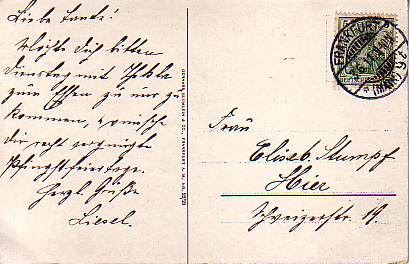 Liebe Tante!
Möchte Dich bitten
Dienstag mit Thekla
zum Essen zu uns zu
kommen, wünsche
dir recht vergnügte
Pfingstfeiertage.
Herzl. Grüße
Liesel.
FRANKFURT
(MAIN)
Frau
Eliseb. Stumpf
Hier
Schweizerstr. 19.